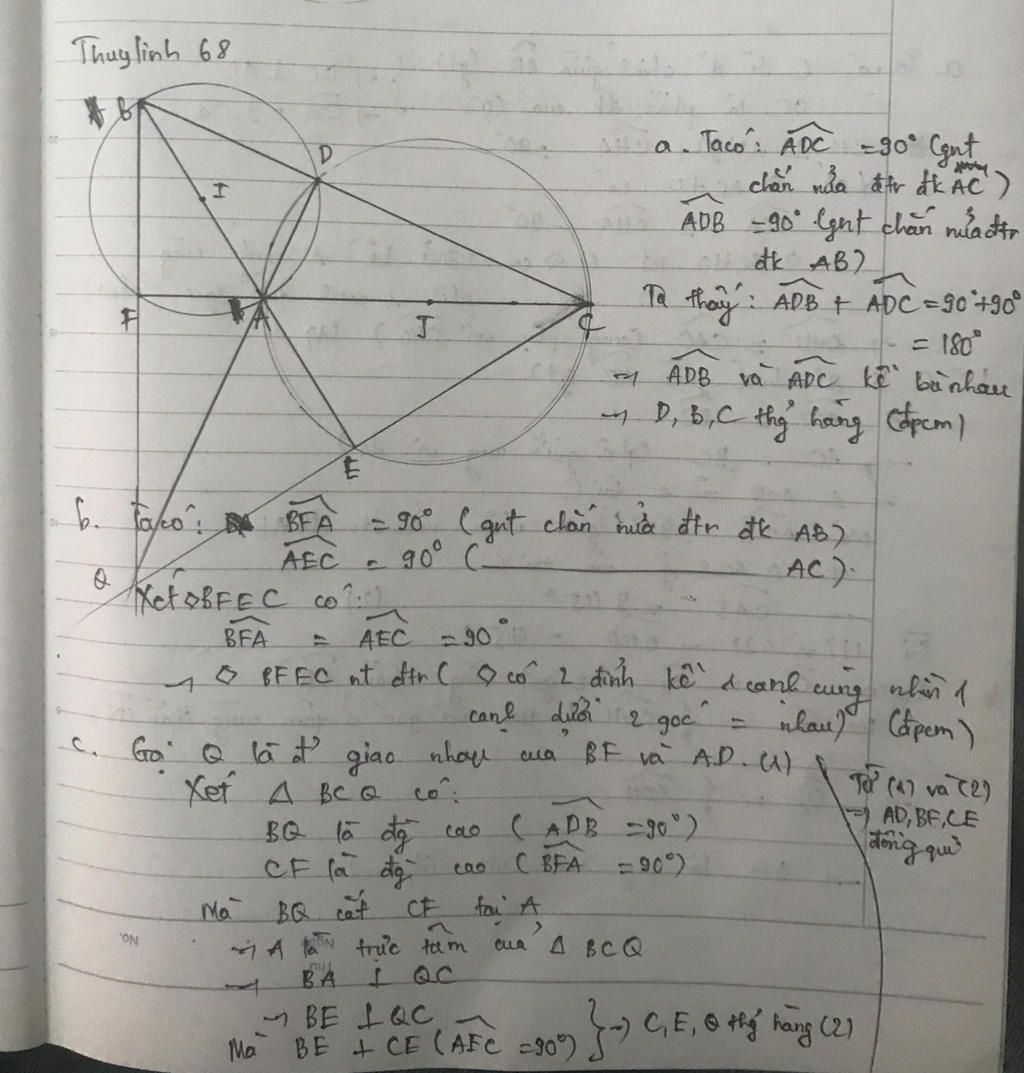 Thuylinh 68
B
D
I
F
A
J
C
E
Q
a. Ta có: ADC = 90° (gnt
chắn nửa đtr đk AC)
ADB = 90° (gnt chắn nửa đtr
đk AB)
Ta thấy: ADB + ADC = 90°+90°
= 180°
→ ADB và ADC kề bù nhau
→ D, B, C thg hàng (đpcm)
b. Ta có: BFA = 90° (gnt chắn nửa đtr đk AB)
AEC = 90° ( AC).
Xét ◇BFEC có:
BFA = AEC = 90°
→ ◇ BFEC nt đtr ( ◇ có 2 đỉnh kề 1 cạnh cùng nhìn 1
cạnh dưới 2 góc = nhau) (đpcm)
c. Gọi Q là đ' giao nhau của BF và AD. (1)
Xét Δ BCQ có:
BQ là đg cao ( ADB = 90°)
CF là đg cao ( BFA = 90°)
Mà BQ cắt CF tại A
→ A là trực tâm của Δ BCQ
→ BA ⊥ QC
→ BE ⊥ QC
Mà BE ⊥ CE ( AEC = 90°) } → C, E, Q thg hàng (2)
Từ (1) và (2)
→ AD, BF, CE
đồng qui
No.